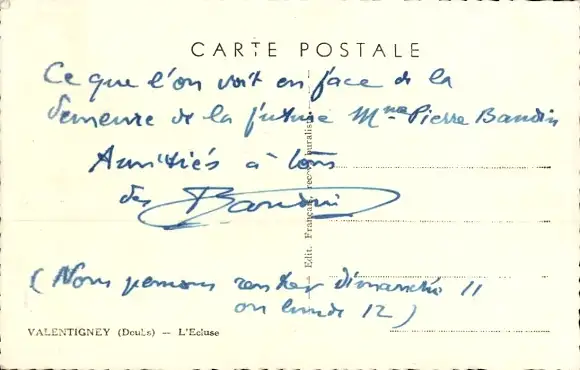 CARTE POSTALE
Ce que l'on voit en face de la
demeure de la future Mme Pierre Baudin
Amitiés à tous
des Baudin
(Nous pensons rentrer dimanche 11
ou lundi 12)
VALENTIGNEY (Doubs) — L'Ecluse
Edit. Français, reg.